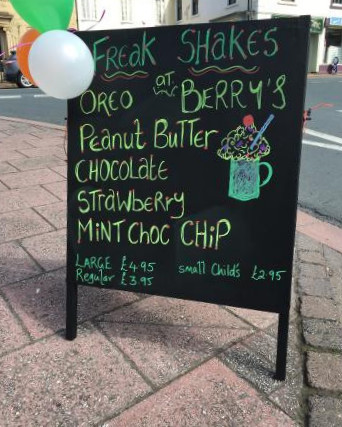 FREAK SHAKES
AT
OREO BERRY'S
Peanut Butter
CHOCOLATE
STRAWBERRY
MINT CHOC CHiP
LARGE £4.95
Regular £3.95
small Child's £2.95